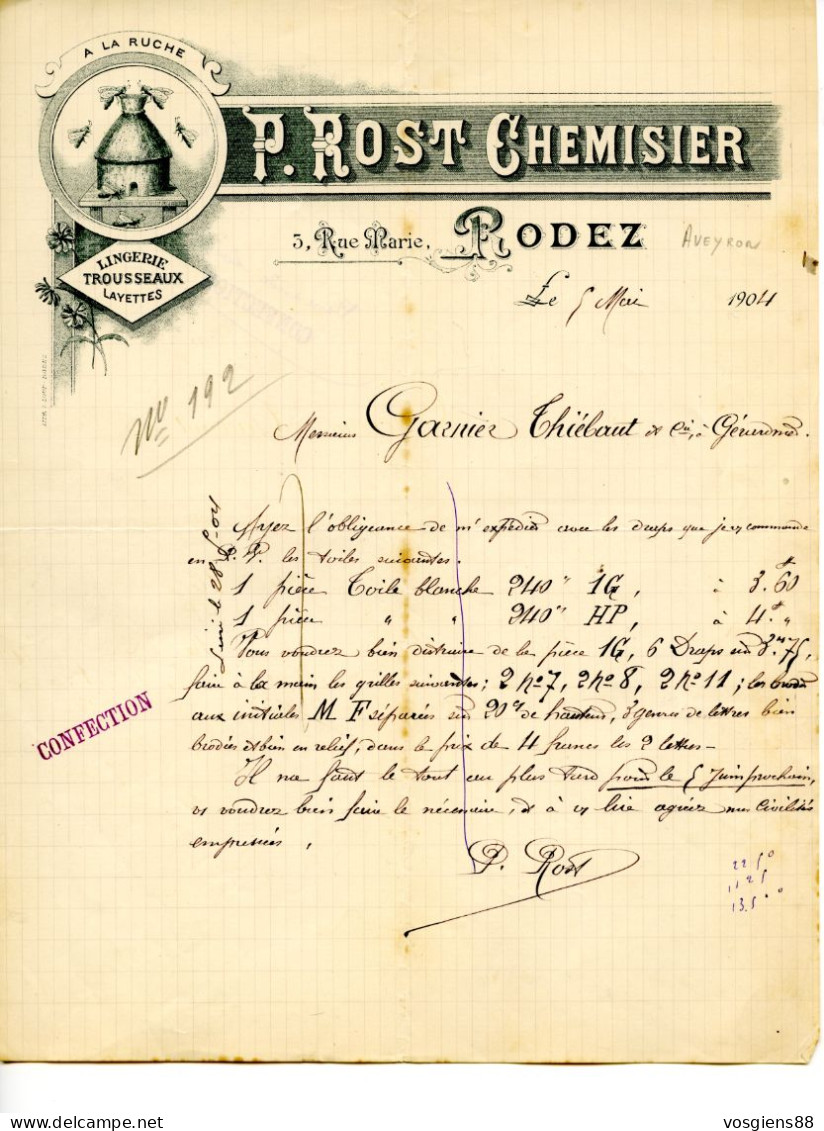 A LA RUCHE
P. ROST CHEMISIER
LINGERIE
TROUSSEAUX
LAYETTES
3, Rue Marie, RODEZ
AVEYRON
Le 5 Mai 1904
No 192
Messieurs Garnier Thiébaut & Cie, à Gérardmer.
Ayez l'obligeance de m'expédier avec les draps que je vs commande
en les toiles suivantes.
1 pièce Toile blanche 240" 1G, à 3.f60
1 pièce " " 240" HP, à 4.f "
Vous voudrez bien distraire de la pièce 1G, 6 Draps sur 3.m75,
faire à la main les grilles suivantes; 2 No 7, 2 No 8, 2 No 11; les broder
aux initiales M F séparées sur 20 de hauteur, genres de lettres bien
brodées et bien en relief, dans le prix de 4 francs les 2 lettres-
Il me faut le tout au plus tard pour le 5 Juin prochain,
vs voudrez bien faire le nécessaire, & à vs lire agréez mes civilités
empressées,
P. Rost
28-5-04
CONFECTION
22 50
11 25
13.5
vosgiens88